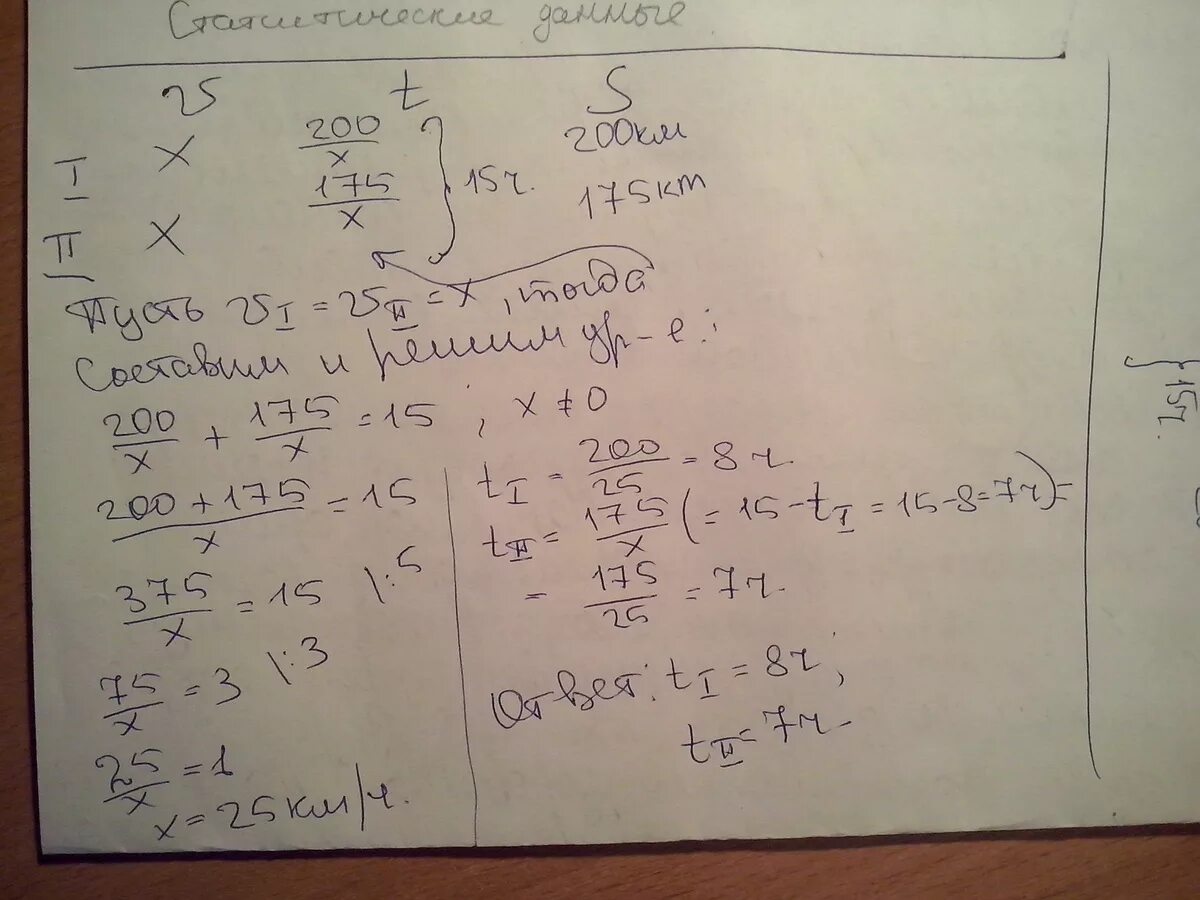 Статистические данные
v t S
I x 200/x 200км
} 15ч.
II x 175/x 175км
Пусть vI = vII = x, тогда
Составим и решим ур-е:
200/x + 175/x = 15 ; x ≠ 0
(200 + 175)/x = 15
375/x = 15 |:5
75/x = 3 |:3
25/x = 1
x = 25 км/ч.
tI = 200/25 = 8 ч.
tII = 175/x (= 15 - tI = 15 - 8 = 7ч) =
= 175/25 = 7ч.
Ответ: tI = 8ч;
tII = 7ч.
} 15ч.